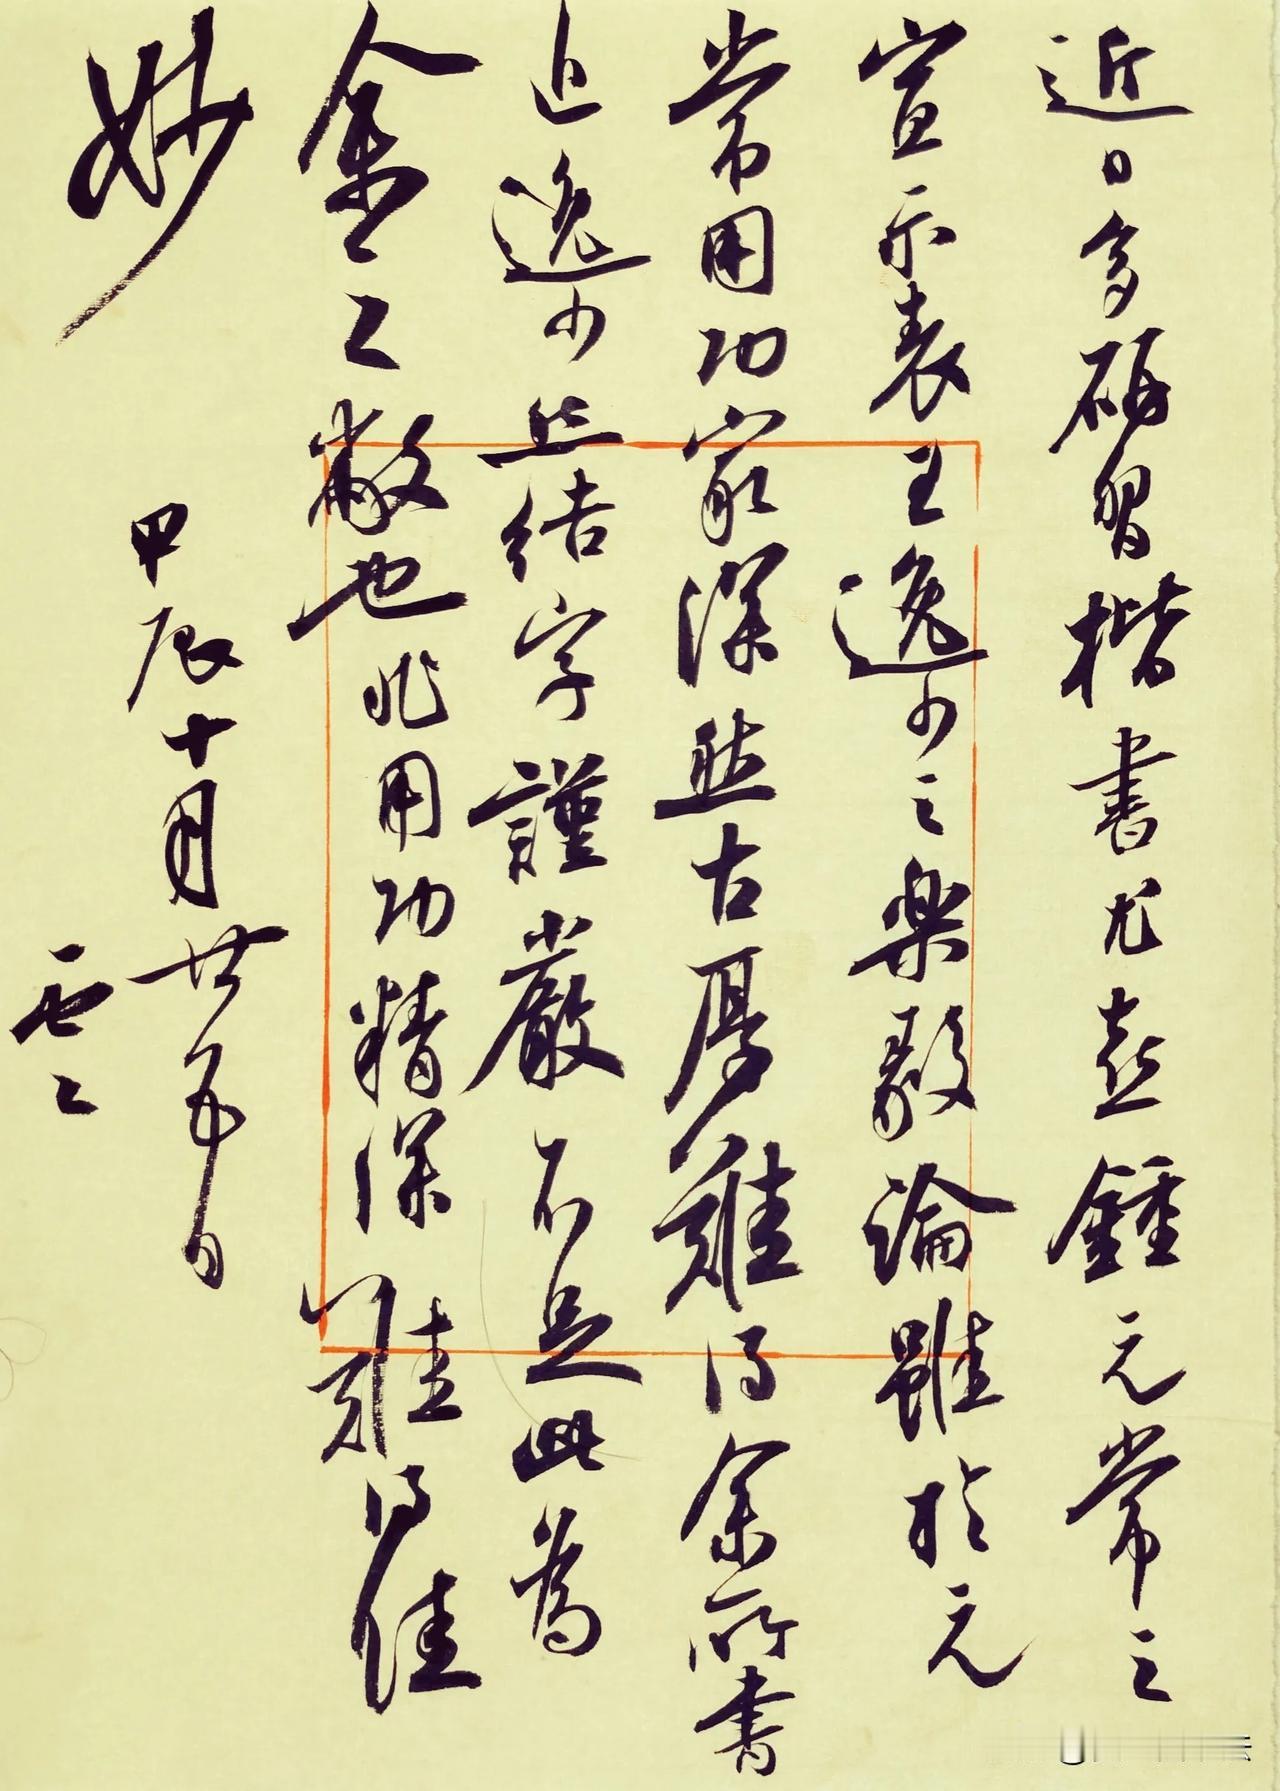 近日多研習楷書尤喜鍾元常之
宣示表王逸少之樂毅論雖於元
常用功家深然古厚難得余所書
近逸少然結字謹嚴不足此為
余之敝也非用功精深難得佳
妙
甲辰十月廿五日